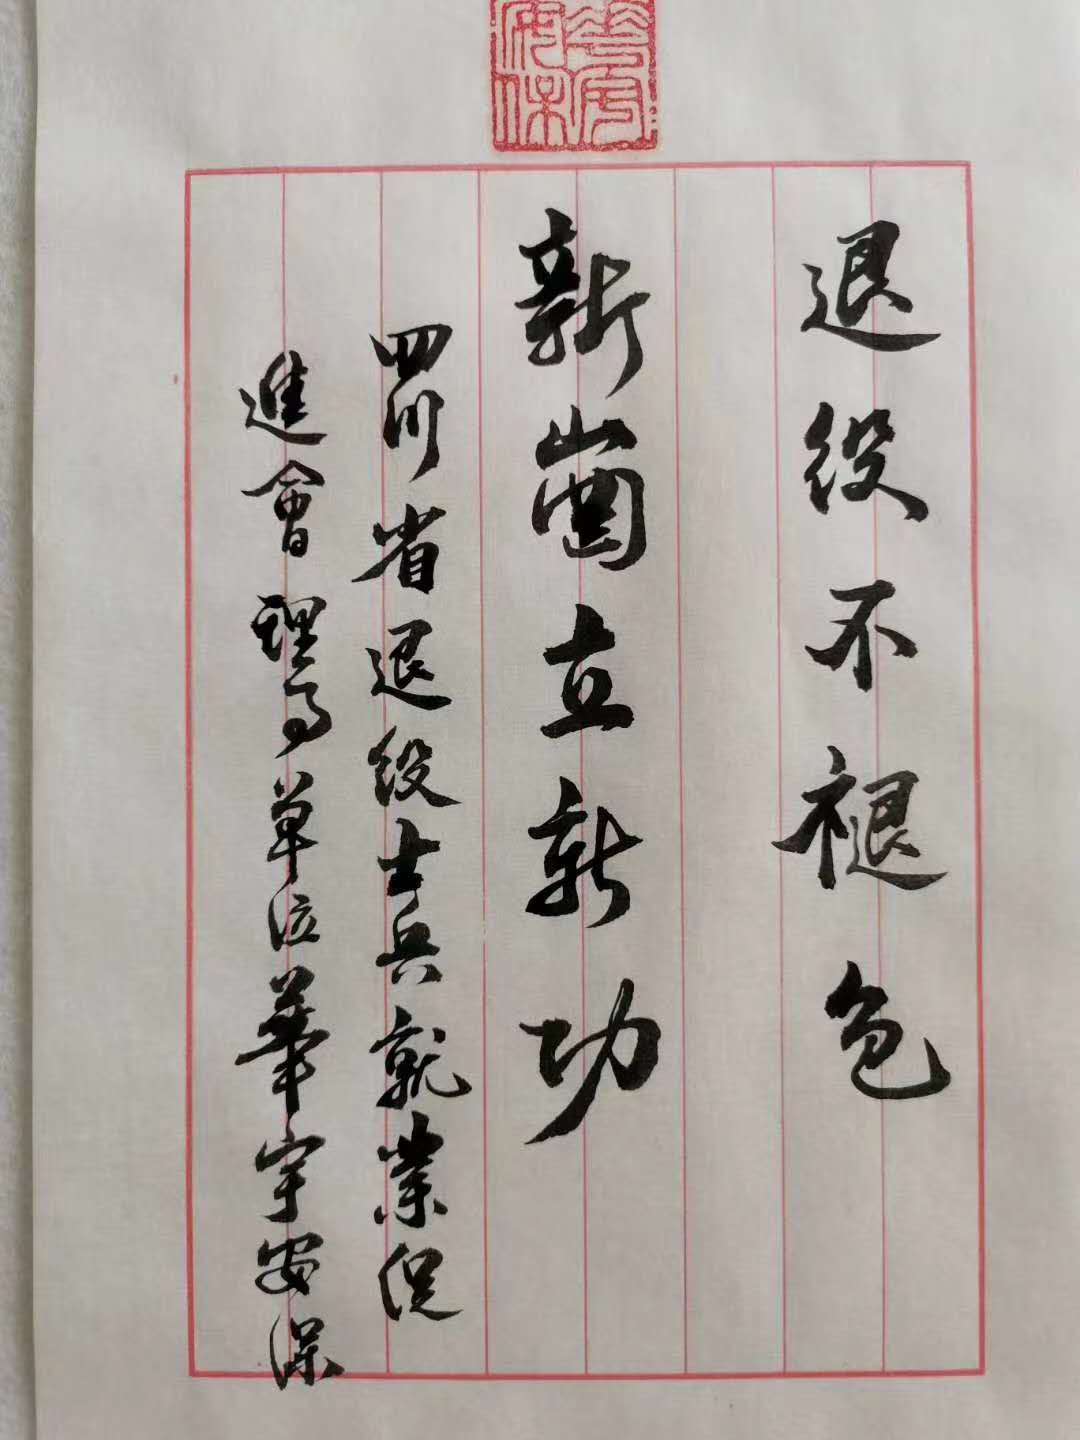 退役不褪色
新崗立新功
四川省退役士兵就業促
進會理事單位華宇安保